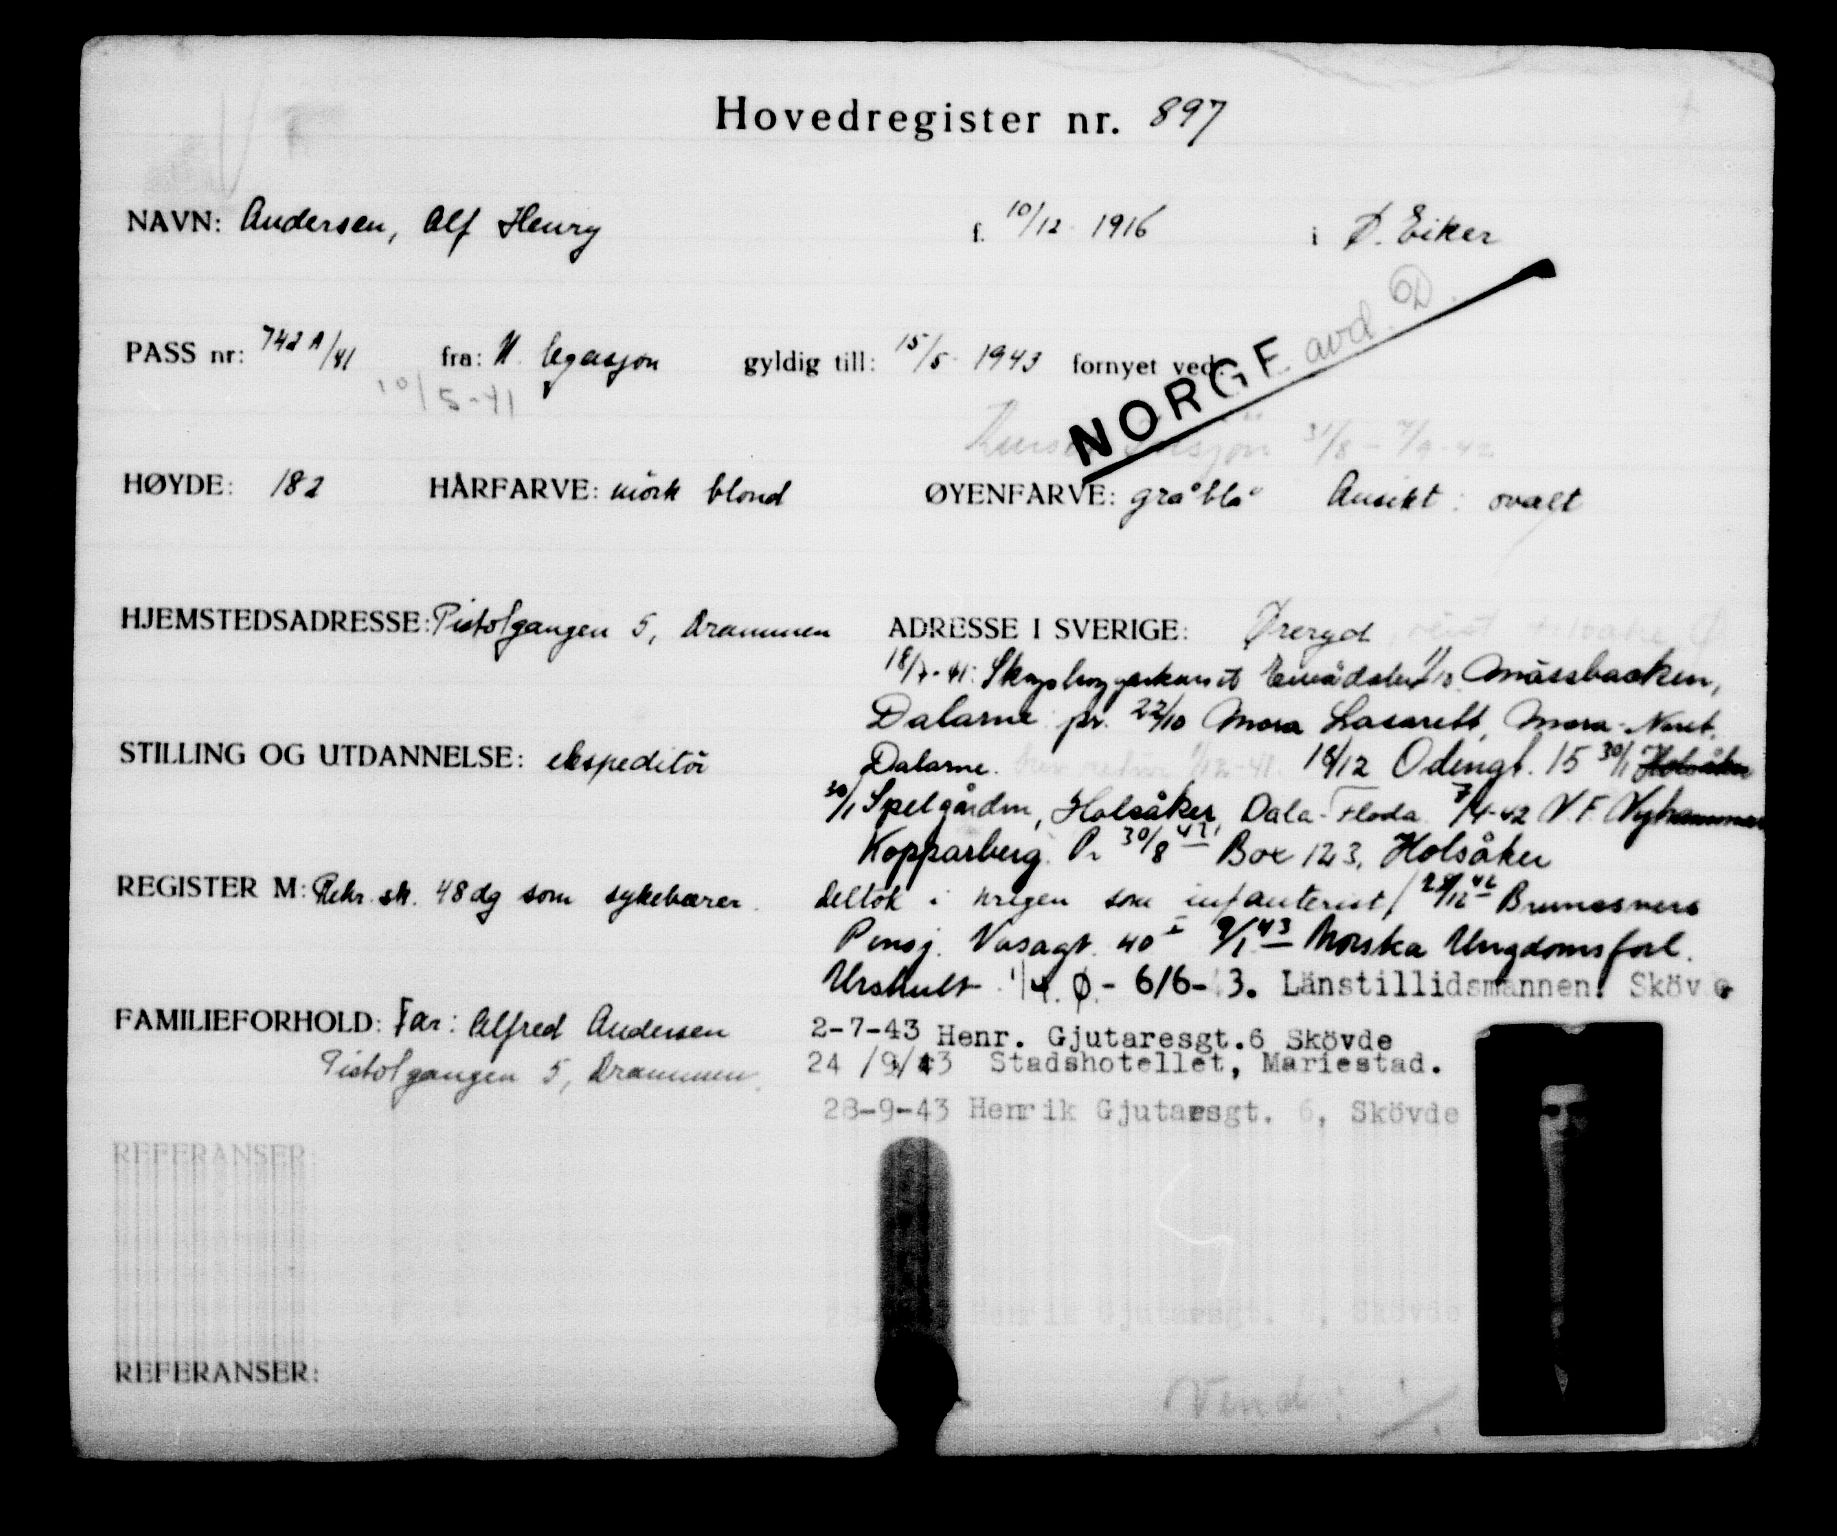 Hovedregister nr. 897
NAVN: Andersen, Alf Henry f. 10/12 1916 i Ø. Eiker
PASS nr: 742 A/41 fra: N. legasjon gyldig till: 15/5 1943 fornyet ved:
10/5-41
NORGE avd.
31/8 - 7/9-42
HØYDE: 182 HÅRFARVE: mörk blond ØYENFARVE: gråblå Ansikt: ovalt
HJEMSTEDSADRESSE: Pistolgangen 5, Drammen ADRESSE I SVERIGE: Øreryd
18/7-41: Mässbacken,
Dalarne pr. 22/10 Mora Lasarett, Mora-Noret.
STILLING OG UTDANNELSE: ekspeditör Dalarne. 18/12 Odengt. 15 30/1 Holsåker
30/1 Spelgården, Holsåker, Dala-Floda 7/4-42 V.F. Nyhammar
Kopparberg. Pr 30/8 42 Box 123, Holsåker
REGISTER M: Rekr.sk. 48 dg som sykebærer. deltok i krigen som infanterist/ Brunssners
Pensj. Vasagt. 40 I 9/1 43 Norska Ungdomsförl.
Urshult 1/4. Ø.- 6/6-43. Länstillidsmannen. Skövde
FAMILIEFORHOLD: Far: Alfred Andersen 2-7-43 Henr. Gjutaresgt.6 Skövde
Pistolgangen 5, Drammen. 24/9/43 Stadshotellet, Mariestad.
28-9-43 Henrik Gjutaresgt. 6, Skövde
REFERANSER:
Henrik Gjutaresgt. 6, Skövde
REFERANSER:
Vend: